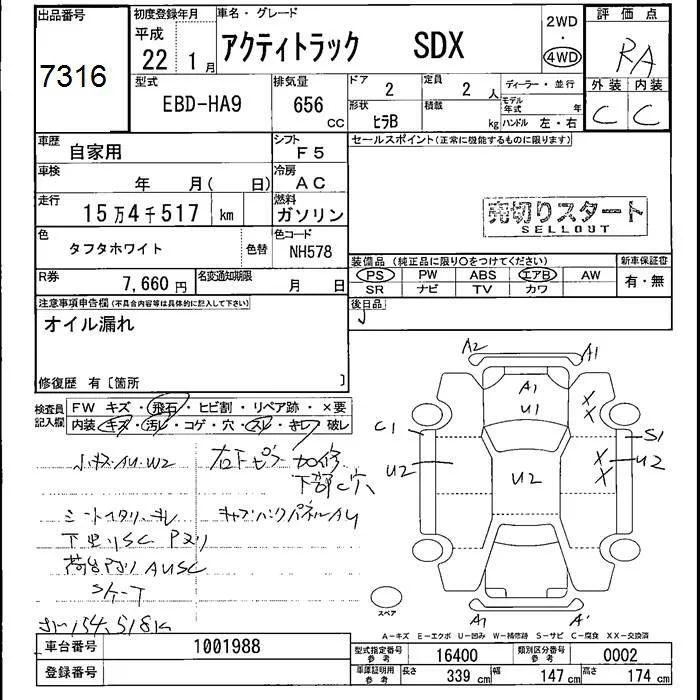 出品番号 初度登録年月 車名・グレード 評価点
7316 平成 22年 1月 アクティトラック SDX 2WD ・ 4WD RA
型式 EBD-HA9 排気量 656 CC ドア 2 定員 2人 ディーラー・並行 外装 内装
形状 ヒラB 積載 kg モデル年式 年 ハンドル 左・右 C C
車歴 自家用 シフト F5 セールスポイント(正常に機能するものに限ります)
車検 年 月( 日) 冷房 AC
走行 15万4千517 km 燃料 ガソリン 売切りスタート
SELLOUT
色 タフタホワイト 色替 色コード NH578
装備品(純正品に限り○をつけてください) 新車保証書
R券 7,660円 名変通知期限 月 日 PS PW ABS エアB AW 有・無
SR ナビ TV カワ
注意事項申告欄(不具合内容等は具体的に記入して下さい) 後日品
オイル漏れ
修復歴 有〔箇所 〕
検査員記入欄 FW キズ・飛石・ヒビ割・リペア跡・×要
内装・キズ・汚レ・コゲ・穴・スレ・キレ・破レ
小キズ・AU・W2 右下ピラー加修
下部C穴
シートスタリ・キレ キャブバックパネルAU
下回りSC
AUSC
スケーT
154,518K
A2 A1
A1
U1
C1 S1
U2 U2 U2
X X
X X
A1 A'
スペア
A-キズ E-エクボ U-凹み W-補修跡 S-サビ C-腐食 XX-交換済
車台番号 1001988 型式指定番号 参考 16400 類別区分番号 参考 0002
登録番号 車庫証明用 参考 長さ 339 cm 幅 147 cm 高さ 174 cm